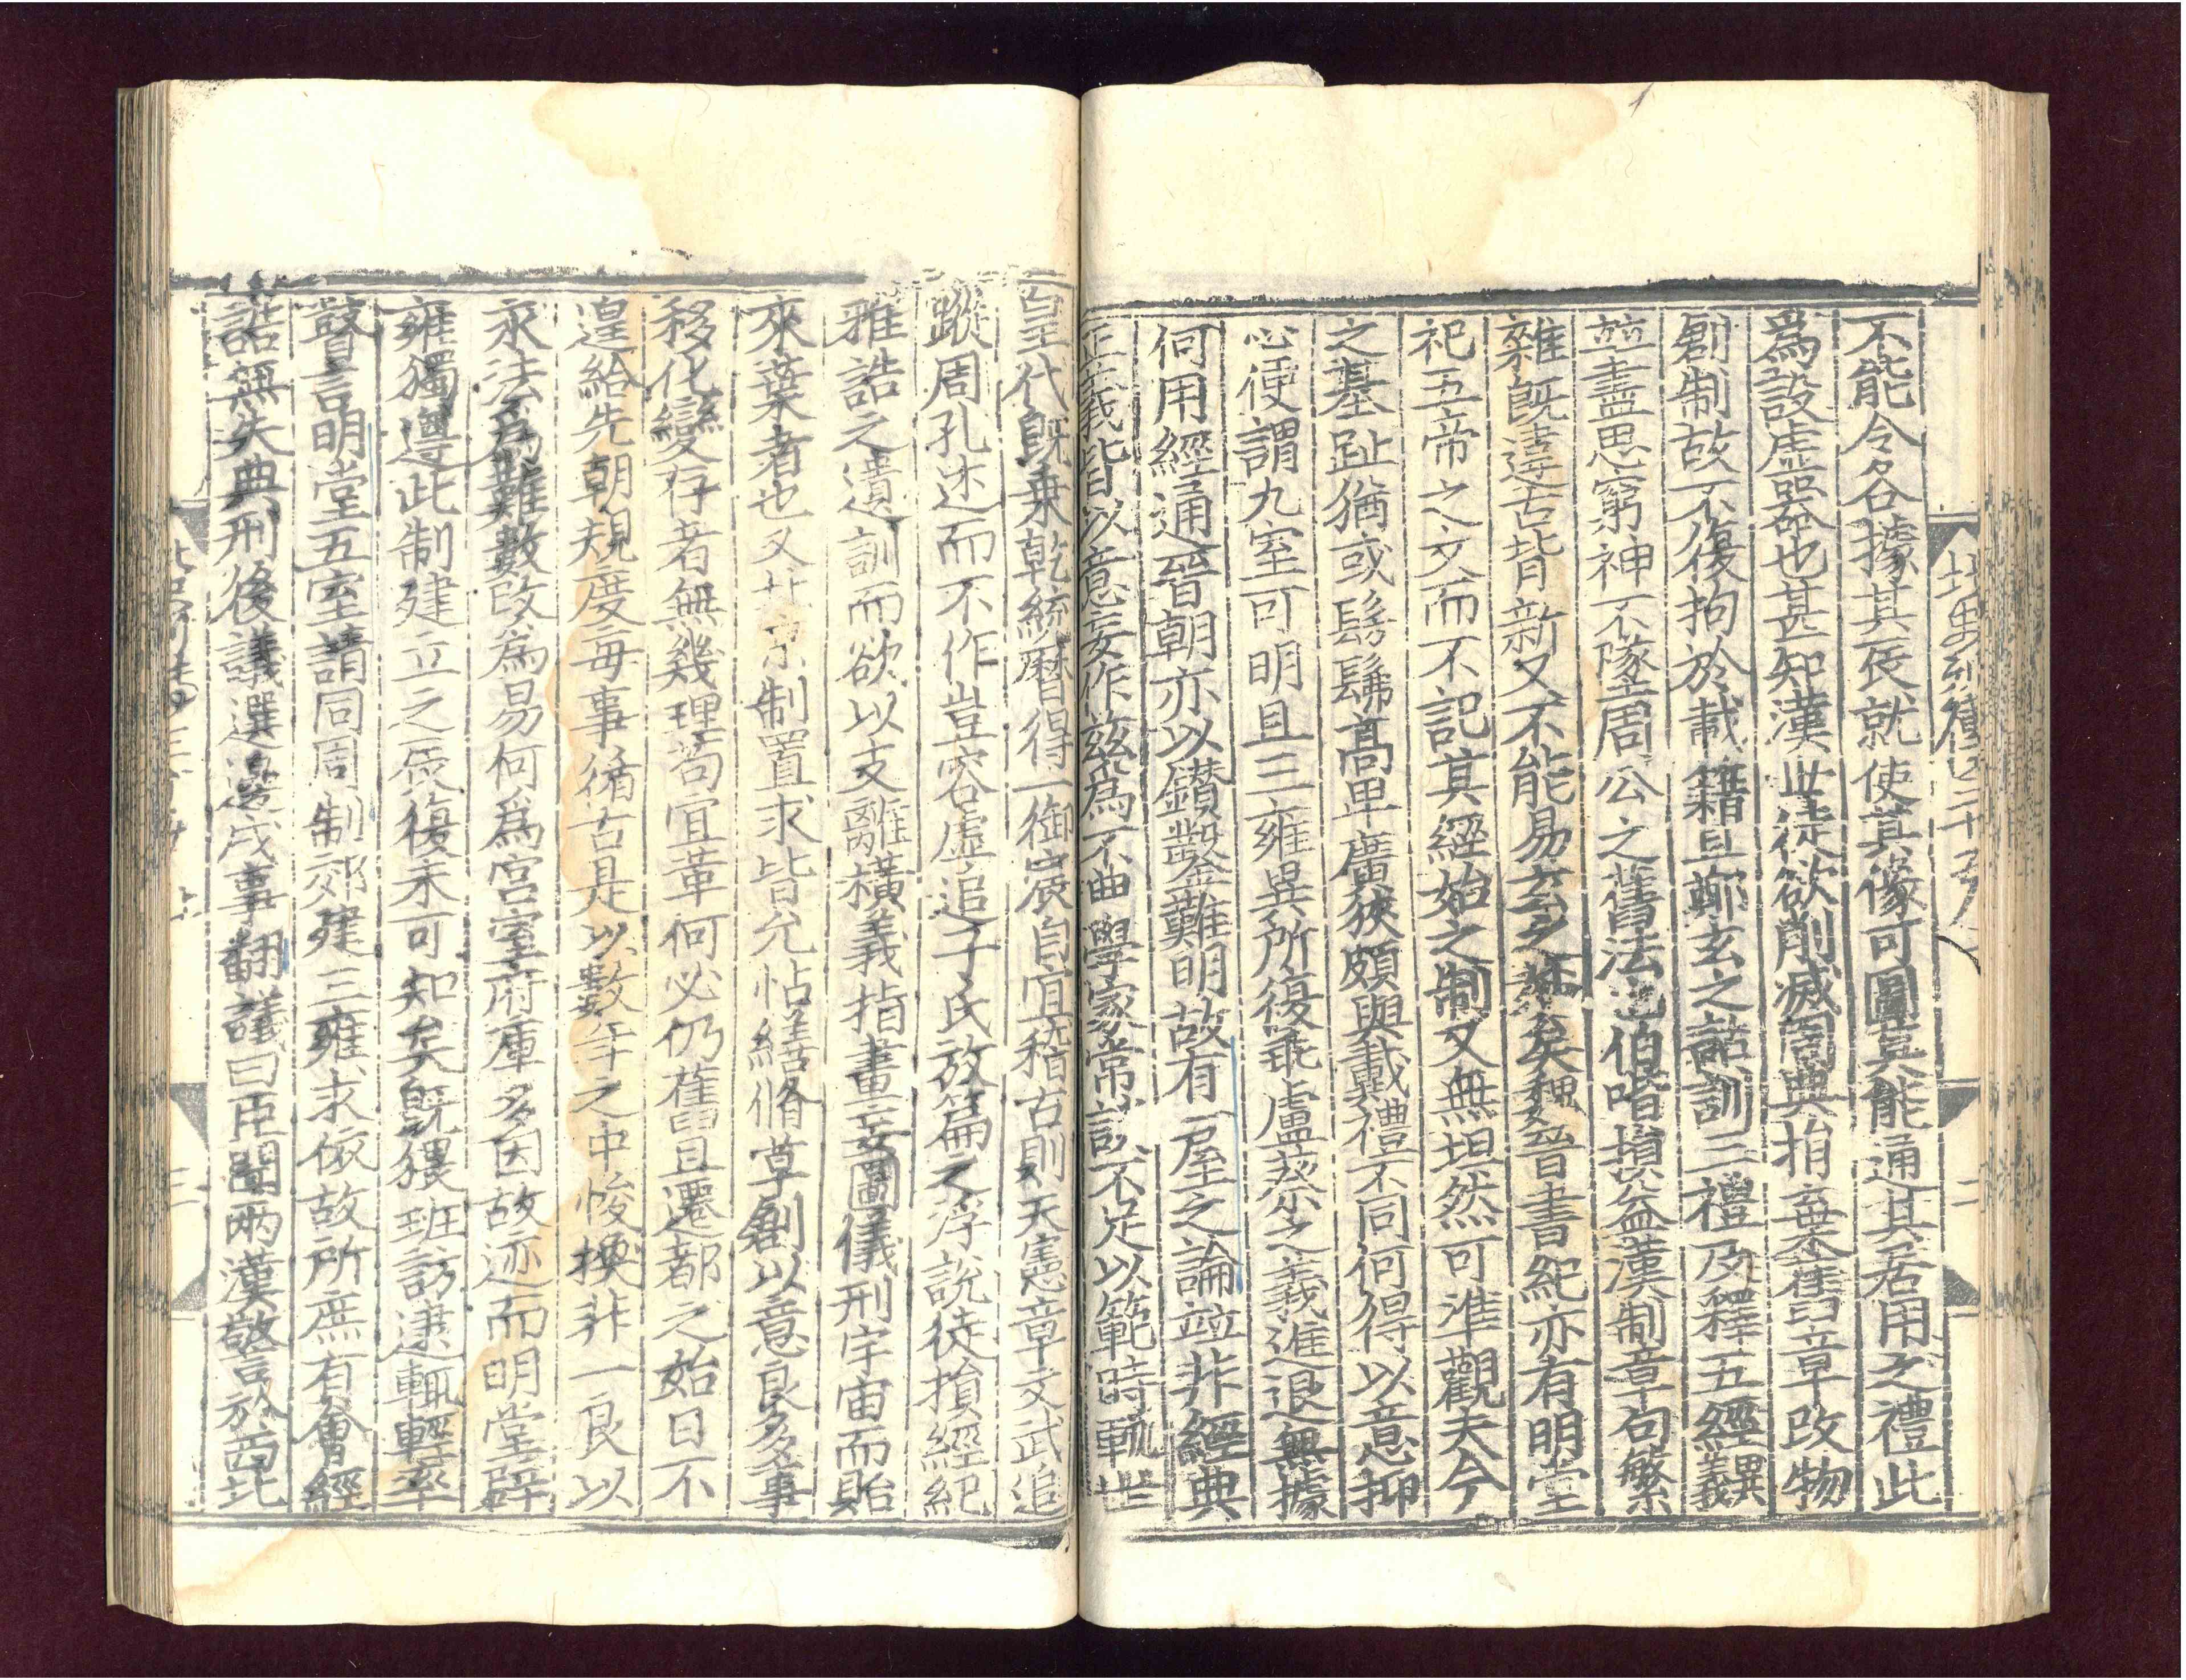 不能令各據其辰就使其像可圖莫能通其居用之禮此
爲設虛器也甚知漢世徒欲削滅周典捐棄舊章改物
創制故不復拘於載籍且鄭玄之詁訓三禮及釋五經異義
並盡思窮神不墜周公之舊法也伯喈損益漢制章句繁
雜旣違古背新又不能易玄之妙矣魏晉書紀亦有明堂
祀五帝之文而不記其經始之制又無坦然可准觀夫今
之基趾猶或髣髴髙卑廣狹頗與戴禮不同何得以意抑
心便謂九室可明且三雍異所復乖盧蔡之義進退無據
何用經通晉朝亦以鑽鑿難明故有一屋之論並非經典
正義皆以意妄作兹爲不曲學家常談不足以範時軌世
皇代旣乗乾統曆得一御宸自宜稽古則天憲章文武追
蹤周孔述而不作豈容虛追子氏放篇之浮說徒損經紀
雅誥之遺訓而欲以支離橫義指畫妄圖儀刑宇宙而貽
來葉者也又北京制置求皆允怗繕脩草創以意良多事
移化變存者無幾理苟宜革何必仍舊且遷都之始日不
遑給先朝規度每事循古是以數年之中悛換非一良以
永法爲難數改爲易何爲宮室府庫多因故迹而明堂辟
雍獨遵此制建立之辰復未可知矣旣猥班訪逮輒輕率
瞽言明堂五室請同周制郊建三雍求依故所庶有會經
誥無失典刑後議選邊戍事翻議曰臣聞兩漢警於西北
北史列傳三十五
二